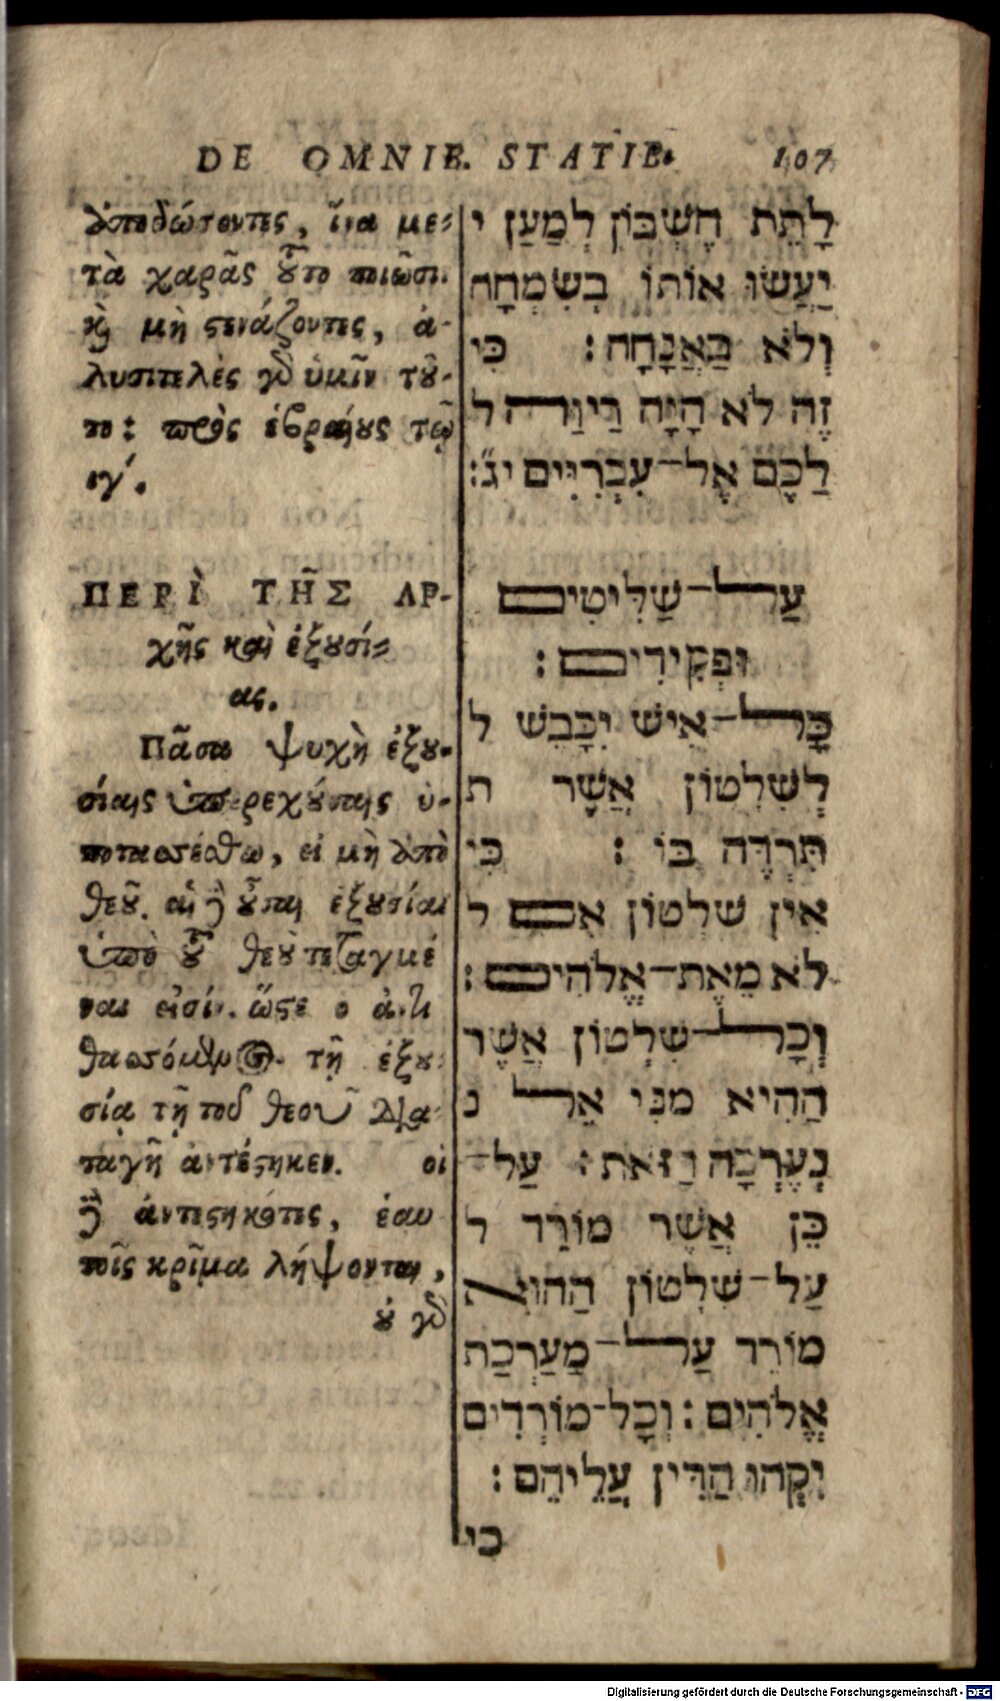 DE OMNIB. STATIB. 107
ἀποδώσοντες, ἵνα με-
τὰ χαρᾶς τοῦτο ποιῶσι.
καὶ μὴ στενάζοντες, ἀ-
λυσιτελὲς γὰρ ὑμῖν τοῦ-
το: πρὸς ἑβραίους τῷ
ιγ΄.
ΠΕΡῚ ΤΗ͂Σ ΑΡ-
χῆς καὶ ἐξουσί-
ας.
Πᾶσα ψυχὴ ἐξου-
σίαις ὑπερεχούσαις ὑ-
ποτασσέσθω, εἰ μὴ ἀπὸ
θεοῦ. αἱ δὲ οὖσαι ἐξουσίαι
ὑπὸ τοῦ θεοῦ τεταγμέ
ναι εἰσίν. ὥστε ὁ ἀντι
τασσόμενος τῇ ἐξου-
σίᾳ τῇ τοῦ θεοῦ δια-
ταγῇ ἀντέστηκεν. οἱ
δὲ ἀντεστηκότες, ἑαυ
τοῖς κρῖμα λήψονται,
οὐ γὰρ
לָתֵת חֶשְׁבּוֹן לְמַעַן י
יַעֲשׂוּ אוֹתוֹ בְשִׂמְחָה
וְלֹא בַּאֲנָחָה : כִּי
זֶה לֹא הָיָה הַיוֹרֶה ל
לַכֶם אֶל־עִבְרִיִּים יג :
עַל־שַׁלִּיטִים
וּפְקִידִים :
כָּל־אִישׁ יִכָּבִשׁ ל
לְשִׁלְטוֹן אֲשֶׁר ת
תִּרְדֶּה בּוֹ : כִּי
אִין שִׁלְטוֹן אִם ל
לֹא מֵאֶת־אֱלֹהִים :
וְכָל־שִׁלְטוֹן אֲשֶׁר
הַהִיא מִנִּי אֵל נ
נֶעֶרְכָה הַזֹּאת : עַל־
כֵּן אֲשֶׁר מוֹרֵד ל
עַל־שִׁלְטוֹן הַהוּא
מוֹרֵד עַל־מַעַרְכַת
אֱלֹהִים : וְכָל־מוֹרְדִים
יִקְהוּ הַדִּין עֲלֵיהֶם :
כי
Digitalisierung gefördert durch die Deutsche Forschungsgemeinschaft - DFG